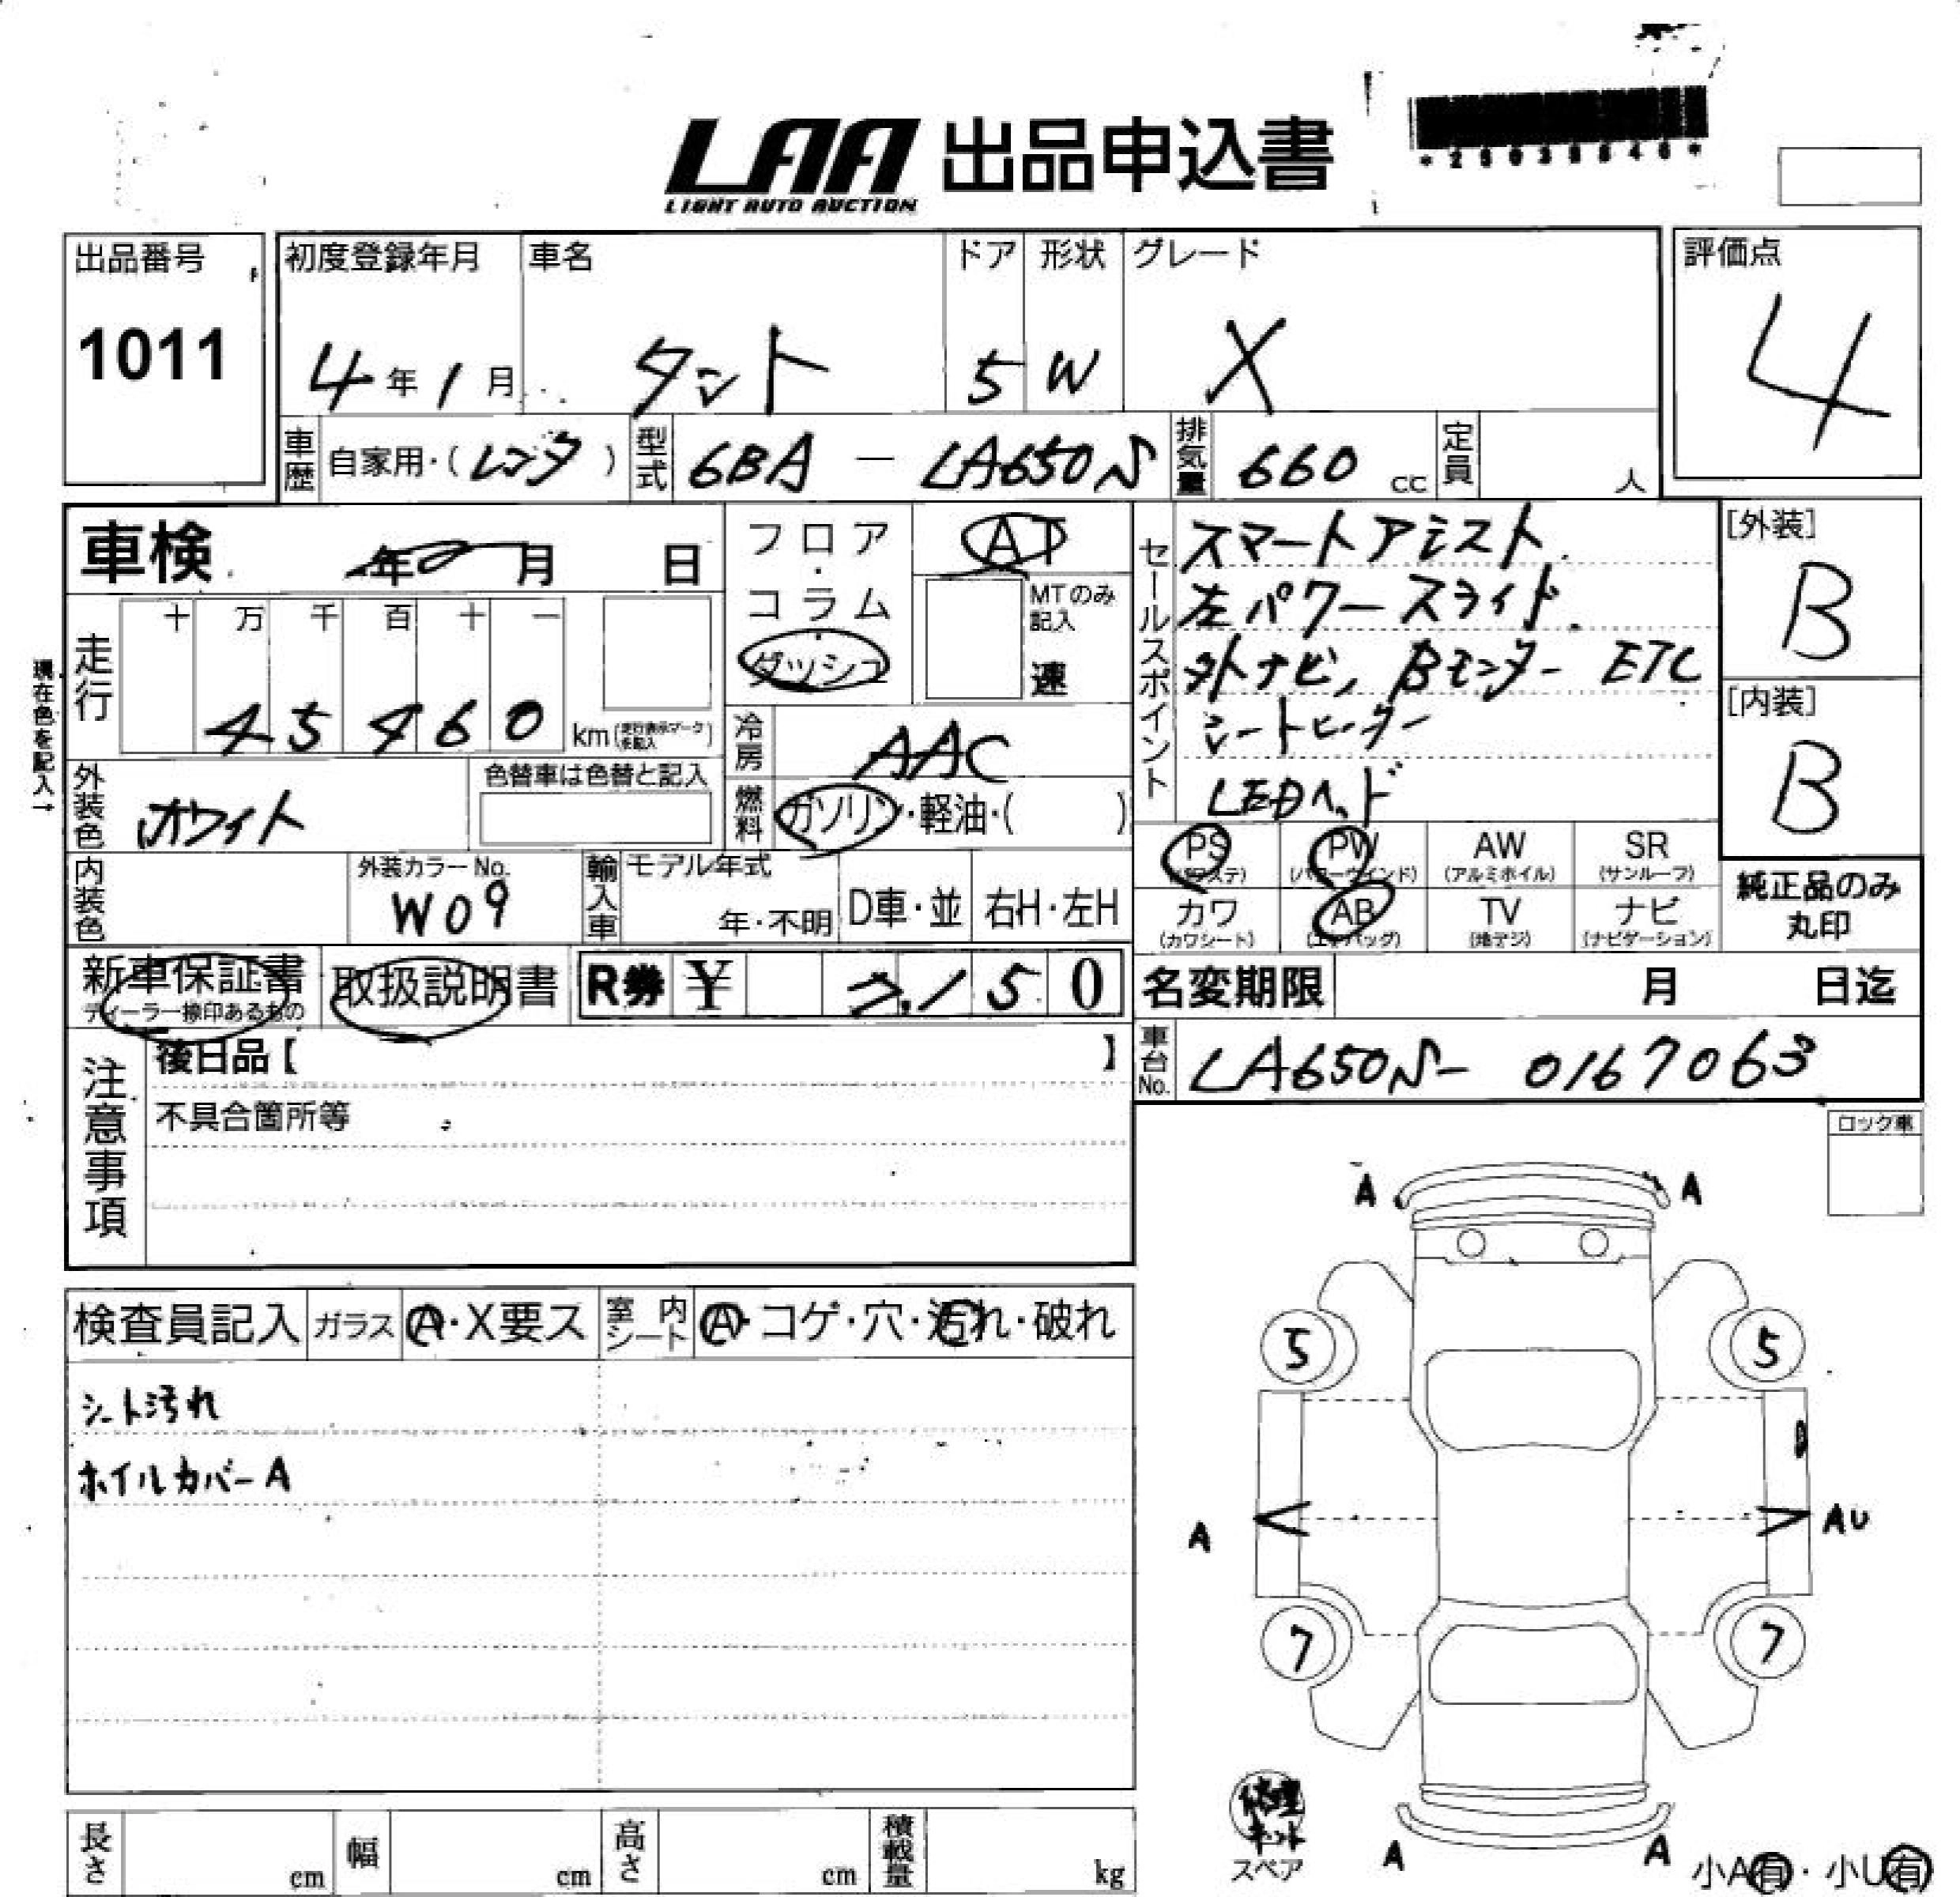 LAA 出品申込書
LIGHT AUTO AUCTION
*29038840*
出品番号
1011
初度登録年月
4年1月
車名
タント
ドア
5
形状
W
グレード
X
評価点
4
車歴
自家用・(レンタ)
型式
6BA - LA650S
排気量
660 cc
定員
人
車検
年 月 日
フロア・コラム・ダッシュ
AT
MTのみ記入
速
セールスポイント
スマートアミスト
左パワースライド
外ナビ, Bモニター ETC
シートヒーター
LEDヘッド
[外装]
B
[内装]
B
現在色を記入→
走行
十 万 千 百 十 一
4 5 4 6 0 km
(走行表示マークを記入)
冷房
AAC
外装色
ホワイト
色替車は色替と記入
燃料
ガソリン・軽油・( )
PS
(パワステ)
PW
(パワーウインド)
AW
(アルミホイル)
SR
(サンルーフ)
カワ
(カワシート)
AB
(エアバッグ)
TV
(地デジ)
ナビ
(ナビゲーション)
純正品のみ
丸印
内装色
外装カラーNo.
W09
輸入車
モデル年式
年・不明
D車・並
右H・左H
新車保証書
ディーラー捺印あるもの
取扱説明書
R券 ¥ 7,150
名変期限
月 日迄
車台No.
LA650S- 0167063
注意事項
後日品【 】
不具合箇所等
ロック車
A A
5 5
A AU
7 7
検査員記入
ガラス
A・X要ス
室内シート
A・コゲ・穴・汚れ・破れ
シート汚れ
ホイルカバーA
修理キット
スペア
A A
小A有・小U有
長さ cm
幅 cm
高さ cm
積載量 kg